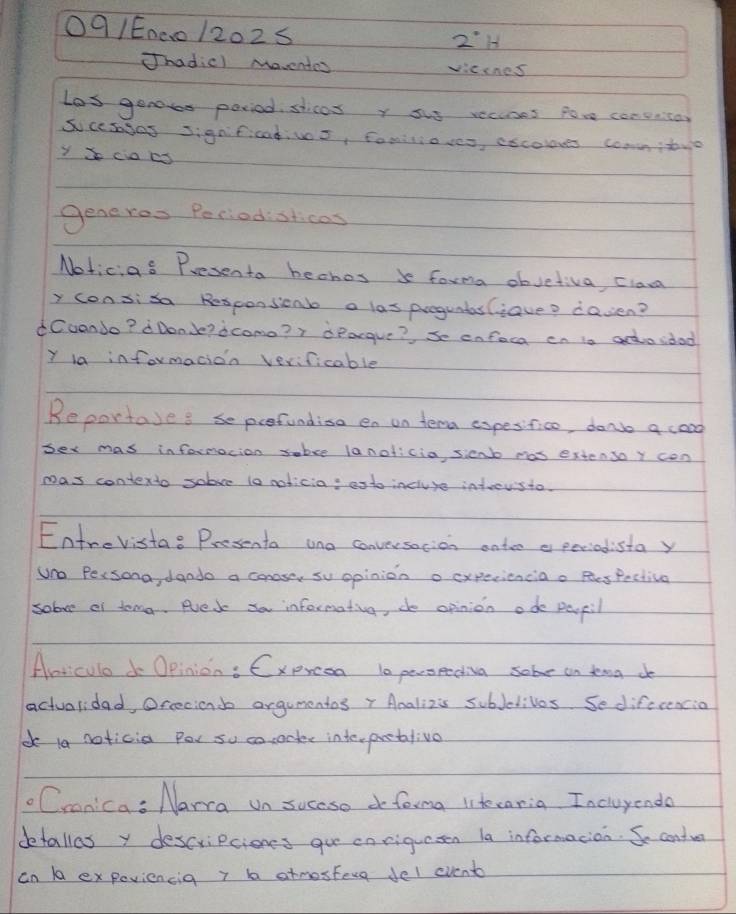 09/Enero/2025 2°H
Jhadiel Viernes
Los generos periodisticos y sus recursos para comunicar
sucesosos significativos, familiares, escolares comunitario
y sociales
generos Periodisticos
Noticia: Presenta hechos de forma objetiva, clara
y consisa Respondiendo a las preguntas (¿que? ¿quien?
¿Cuando? ¿Donde? ¿como? y ¿Porque?, se enfoca en la actualidad
y la información verificable
Reportajes: se profundisa en un tema espesifico, dando a
ser mas informacion sobre la noticia, siendo mas extenso y con
mas contexto sobre la noticia: esto incluye
Entrevista: Presenta una conversación entre el periodista y
una Persona, dando a conoser su opinión o experiencia o Perspectiva
sobre el tema. Puede se informativa, de opinión o de perfil
Articulo de Opinión: Expresa la perspectiva sobe un tema de
actualidad, Ofreciendo argumentos y Analizis subjetivos. Se diferencia
de la noticia por su caracter interpretativo
•Cronica: Narra un suceso de forma literaria Incluyendo
detalles y descripciones que enriquesen la informacion. Se centra
en la experiencia y la atmosfera del evento